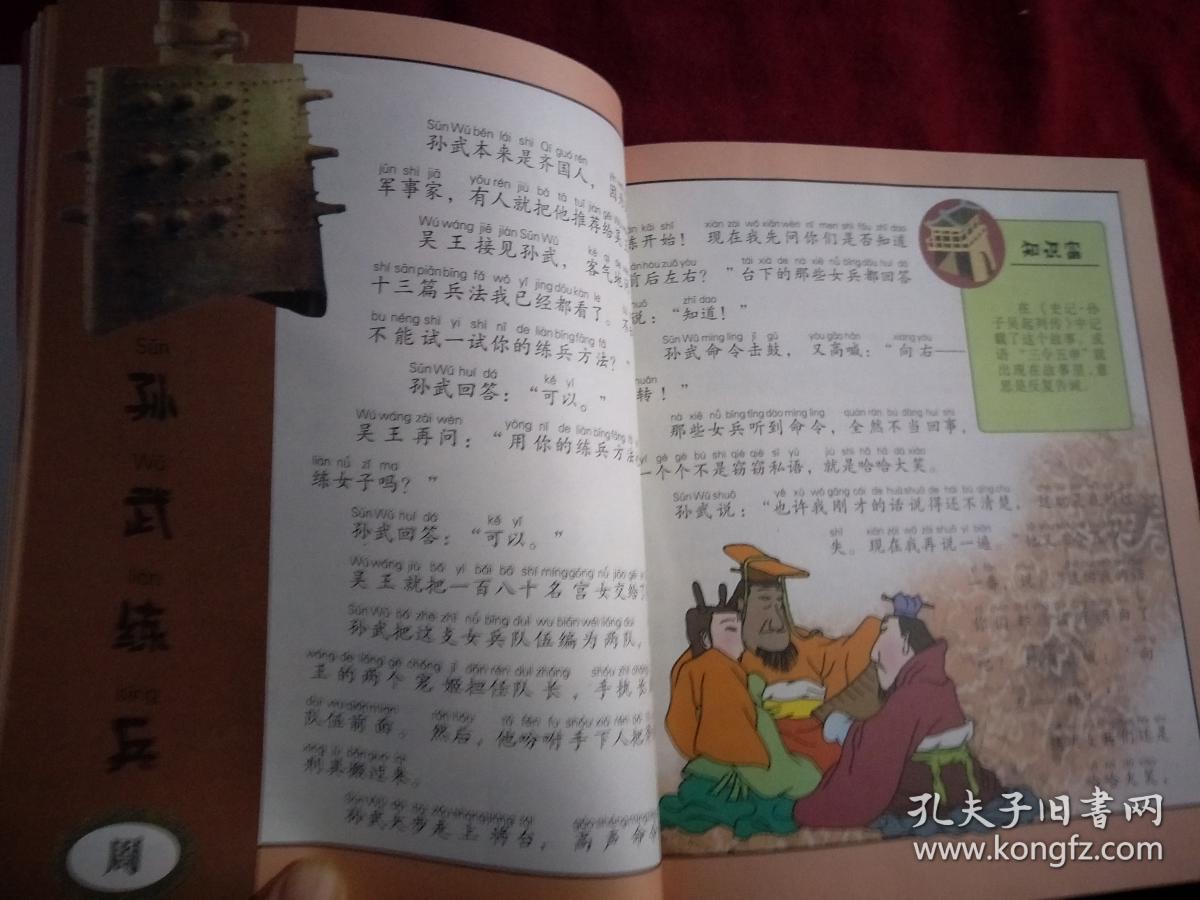 Sūn
孙
Wǔ
武
liàn
练
bīng
兵
周
Sūn Wǔ běn lái shì Qí guó rén
孙武本来是齐国人，因为
jūn shì jiā yǒu rén jiù bǎ tā tuī jiàn gěi
军事家，有人就把他推荐给吴
Wú wáng jiē jiàn Sūn Wǔ kè qi de
吴王接见孙武，客气地
shí sān piān bīng fǎ wǒ yǐ jīng dōu kàn le
十三篇兵法我已经都看了。不
bu néng shì yi shì nǐ de liàn bīng fāng fǎ
不能试一试你的练兵方法？”
Sūn Wǔ huí dá kě yǐ
孙武回答：“可以。”
Wú wáng zài wèn yòng nǐ de liàn bīng fāng fǎ
吴王再问：“用你的练兵方法
liàn nǚ zǐ ma
练女子吗？”
Sūn Wǔ huí dá kě yǐ
孙武回答：“可以。”
Wú wáng jiù bǎ yì bǎi bā shí míng gōng nǚ jiāo gěi
吴王就把一百八十名宫女交给了
Sūn Wǔ bǎ zhè zhī nǚ bīng duì wu biān wéi liǎng duì
孙武把这支女兵队伍编为两队，
wáng de liǎng gè chǒng jī dān rèn duì zhǎng shǒu zhí cháng
王的两个宠姬担任队长，手执长
duì wu qián mian rán hòu tā fēn fù shǒu xià rén bǎ
队伍前面。然后，他吩咐手下人把
刑具搬过来。
孙武大步走上将台，高声命令
liàn kāi shǐ xiàn zài wǒ xiān wèn nǐ men shì fǒu zhī dào
练开始！现在我先问你们是否知道
qián hòu zuǒ yòu tái xià de nà xiē nǚ bīng dōu huí dá
前后左右？”台下的那些女兵都回答
shuō zhī dào
说：“知道！”
Sūn Wǔ mìng lìng jī gǔ yòu gāo hǎn xiàng yòu
孙武命令击鼓，又高喊：“向右——
zhuǎn
转！”
nà xiē nǚ bīng tīng dào mìng lìng quán rán bù dàng huí shì
那些女兵听到命令，全然不当回事，
yí gè gè bú shì qiè qiè sī yǔ jiù shì hā hā dà xiào
一个个不是窃窃私语，就是哈哈大笑。
Sūn Wǔ shuō yě xǔ wǒ gāng cái de huà shuō de hái bù qīng chu
孙武说：“也许我刚才的话说得还不清楚，
shī xiàn zài wǒ zài shuō yí biàn
失。现在我再说一遍。”他又
哈哈大笑，
知识窗
在《史记·孙
子吴起列传》中记
载了这个故事，成
语“三令五申”就
出现在故事里，意
思是反复告诫。
孔夫子旧书网
www.kongfz.com